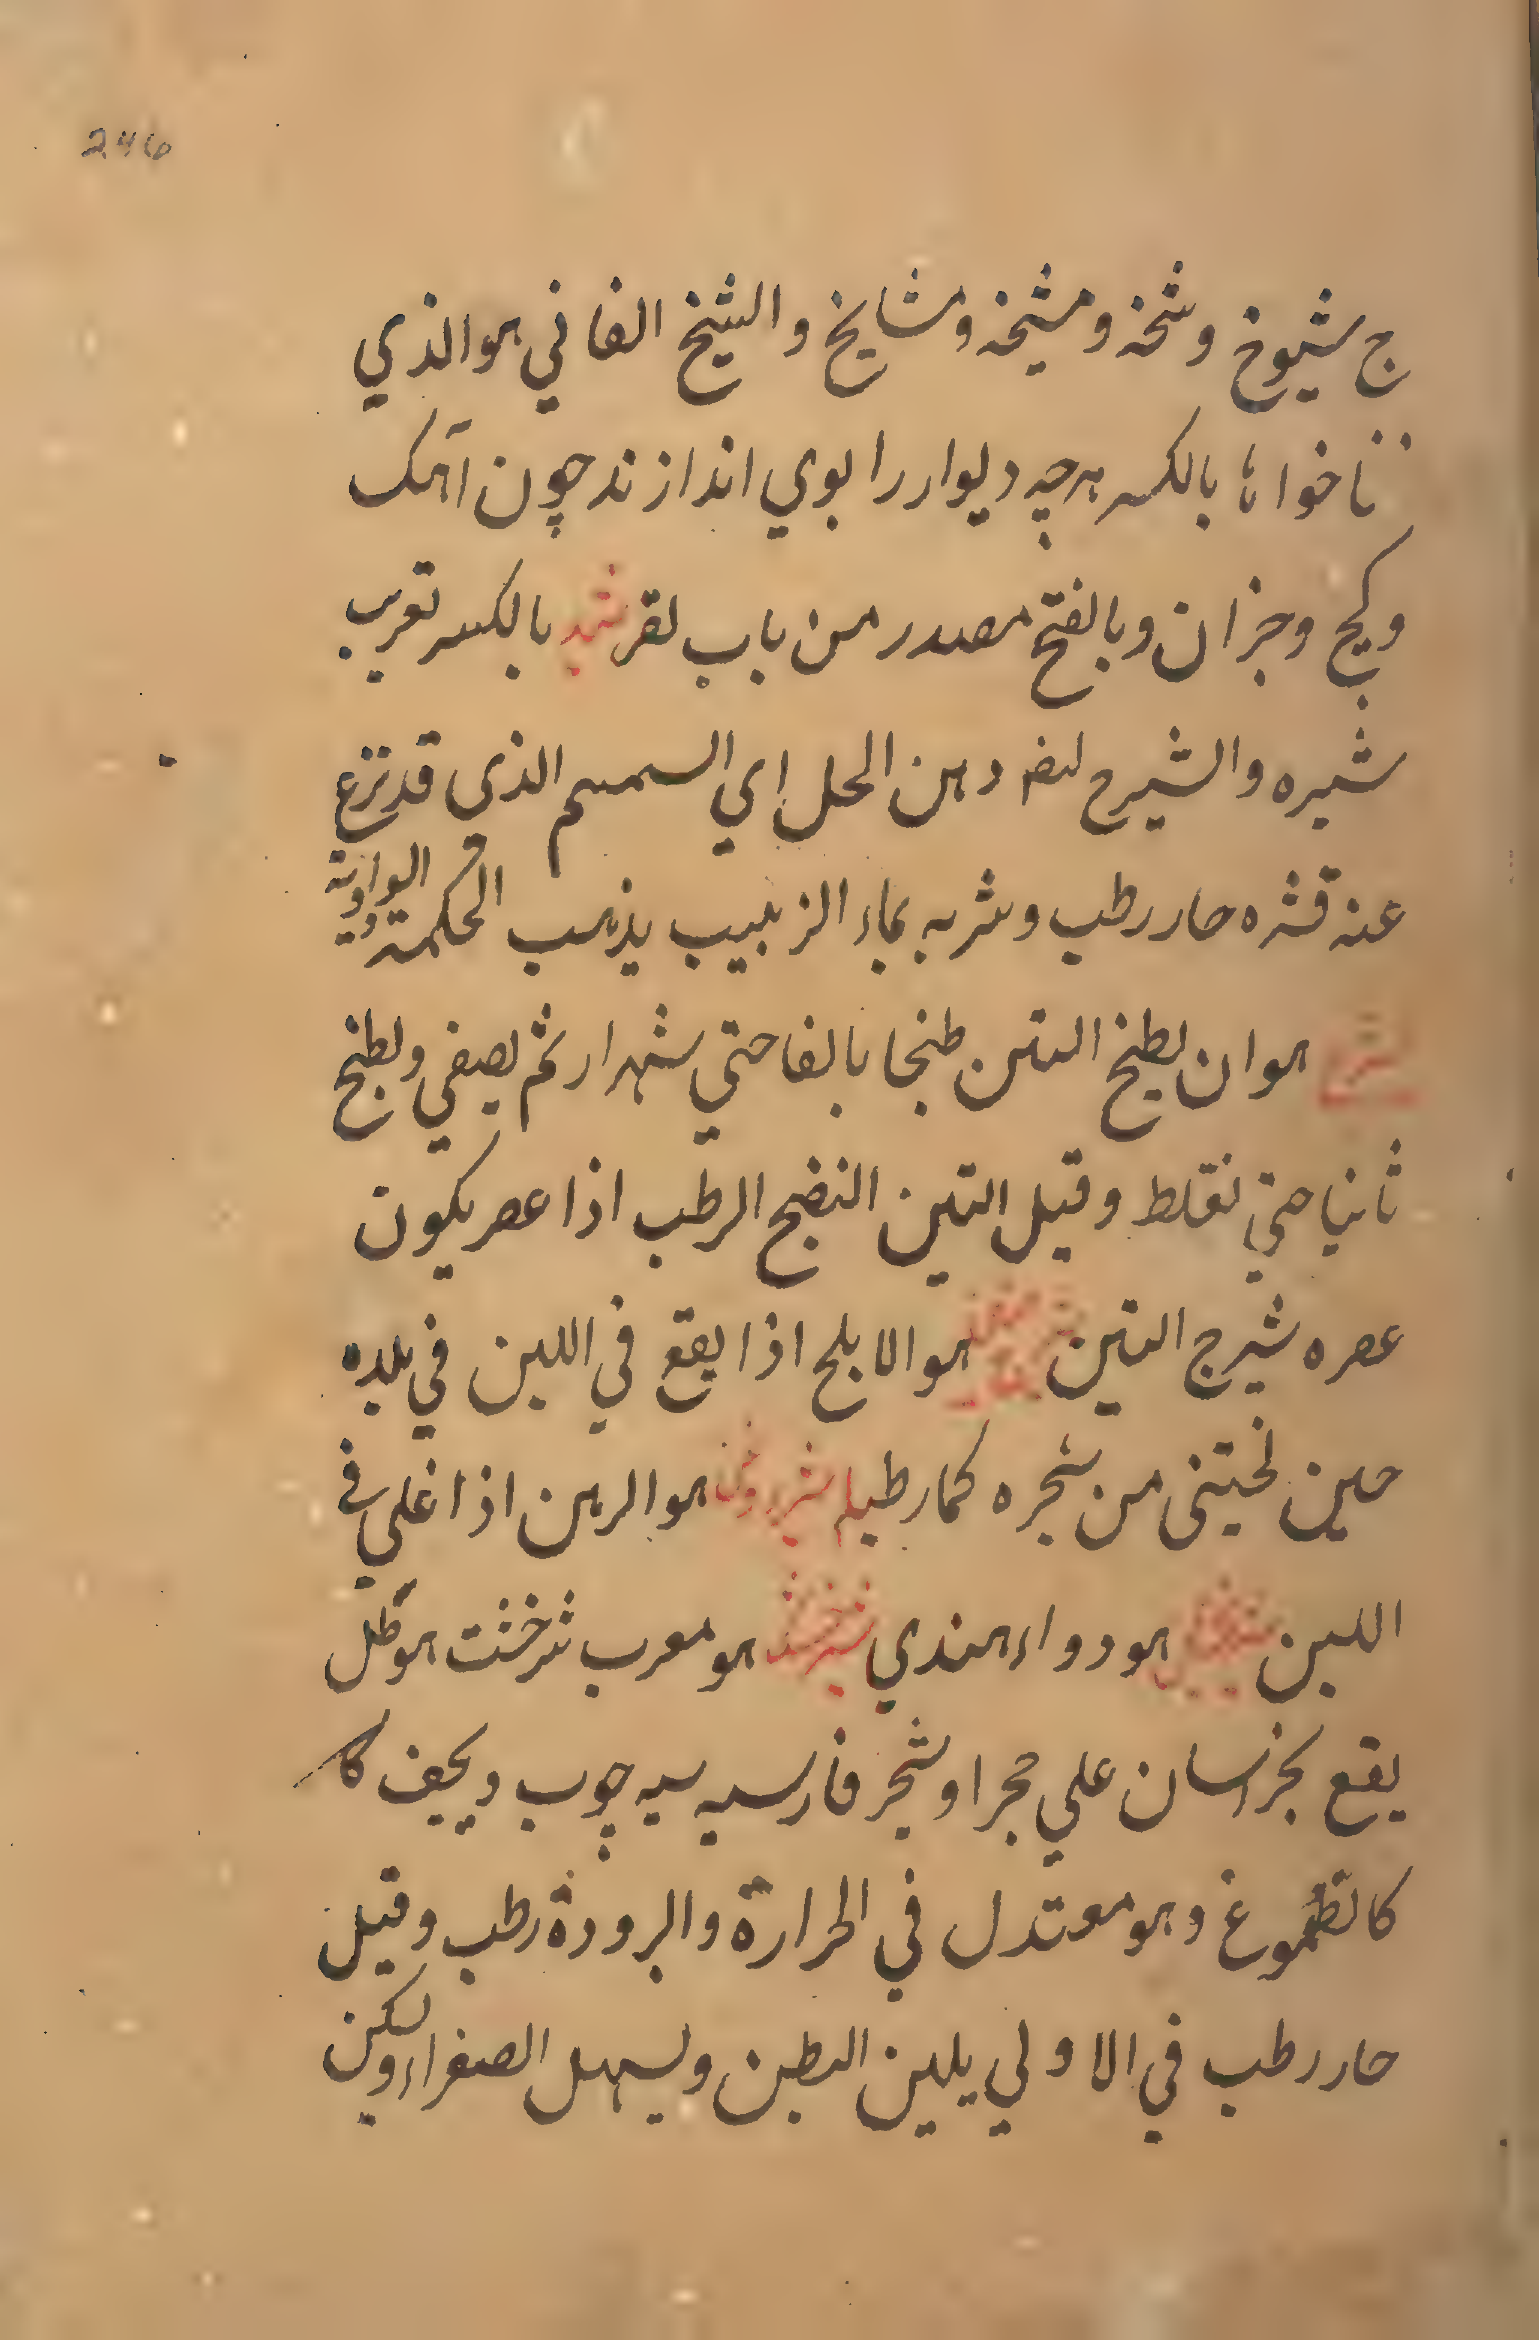 246
ج شيوخ وشخة ومشيخة ومشايخ والشيخ الفاني هوالذي
بالكسر هرچه ديوار را بوي اندازند چون آهك
وكج وجزان وبالفتح مصدر من باب بالكسر تعريب
شيره والشيرج دهن الحل اي السمسم الذي قد نزع
عنه قشره حار رطب وشربه بماء الزبيب يذهب الحكمة
هو ان يطبخ التين طبخا بالغا حتي ثم يصفي ويطبخ
ثانيا حتي وقيل التين النضج الرطب اذا عصر يكون
عصره شيرج التين هو الابلح اذا يقع في اللبن في بلده
حين من شجره كما رطبا هو الرهن اذا اغلي في
اللبن هو دواء هندي هو معرب شرخشت هو طل
يقع بخراسان علي حجر او شجر فارسيه سيه چوب ويجف كا
وهو معتدل في الحرارة والبرودة رطب وقيل
حار رطب في الاولي يلين البطن ويسهل الصفراء ويسكن